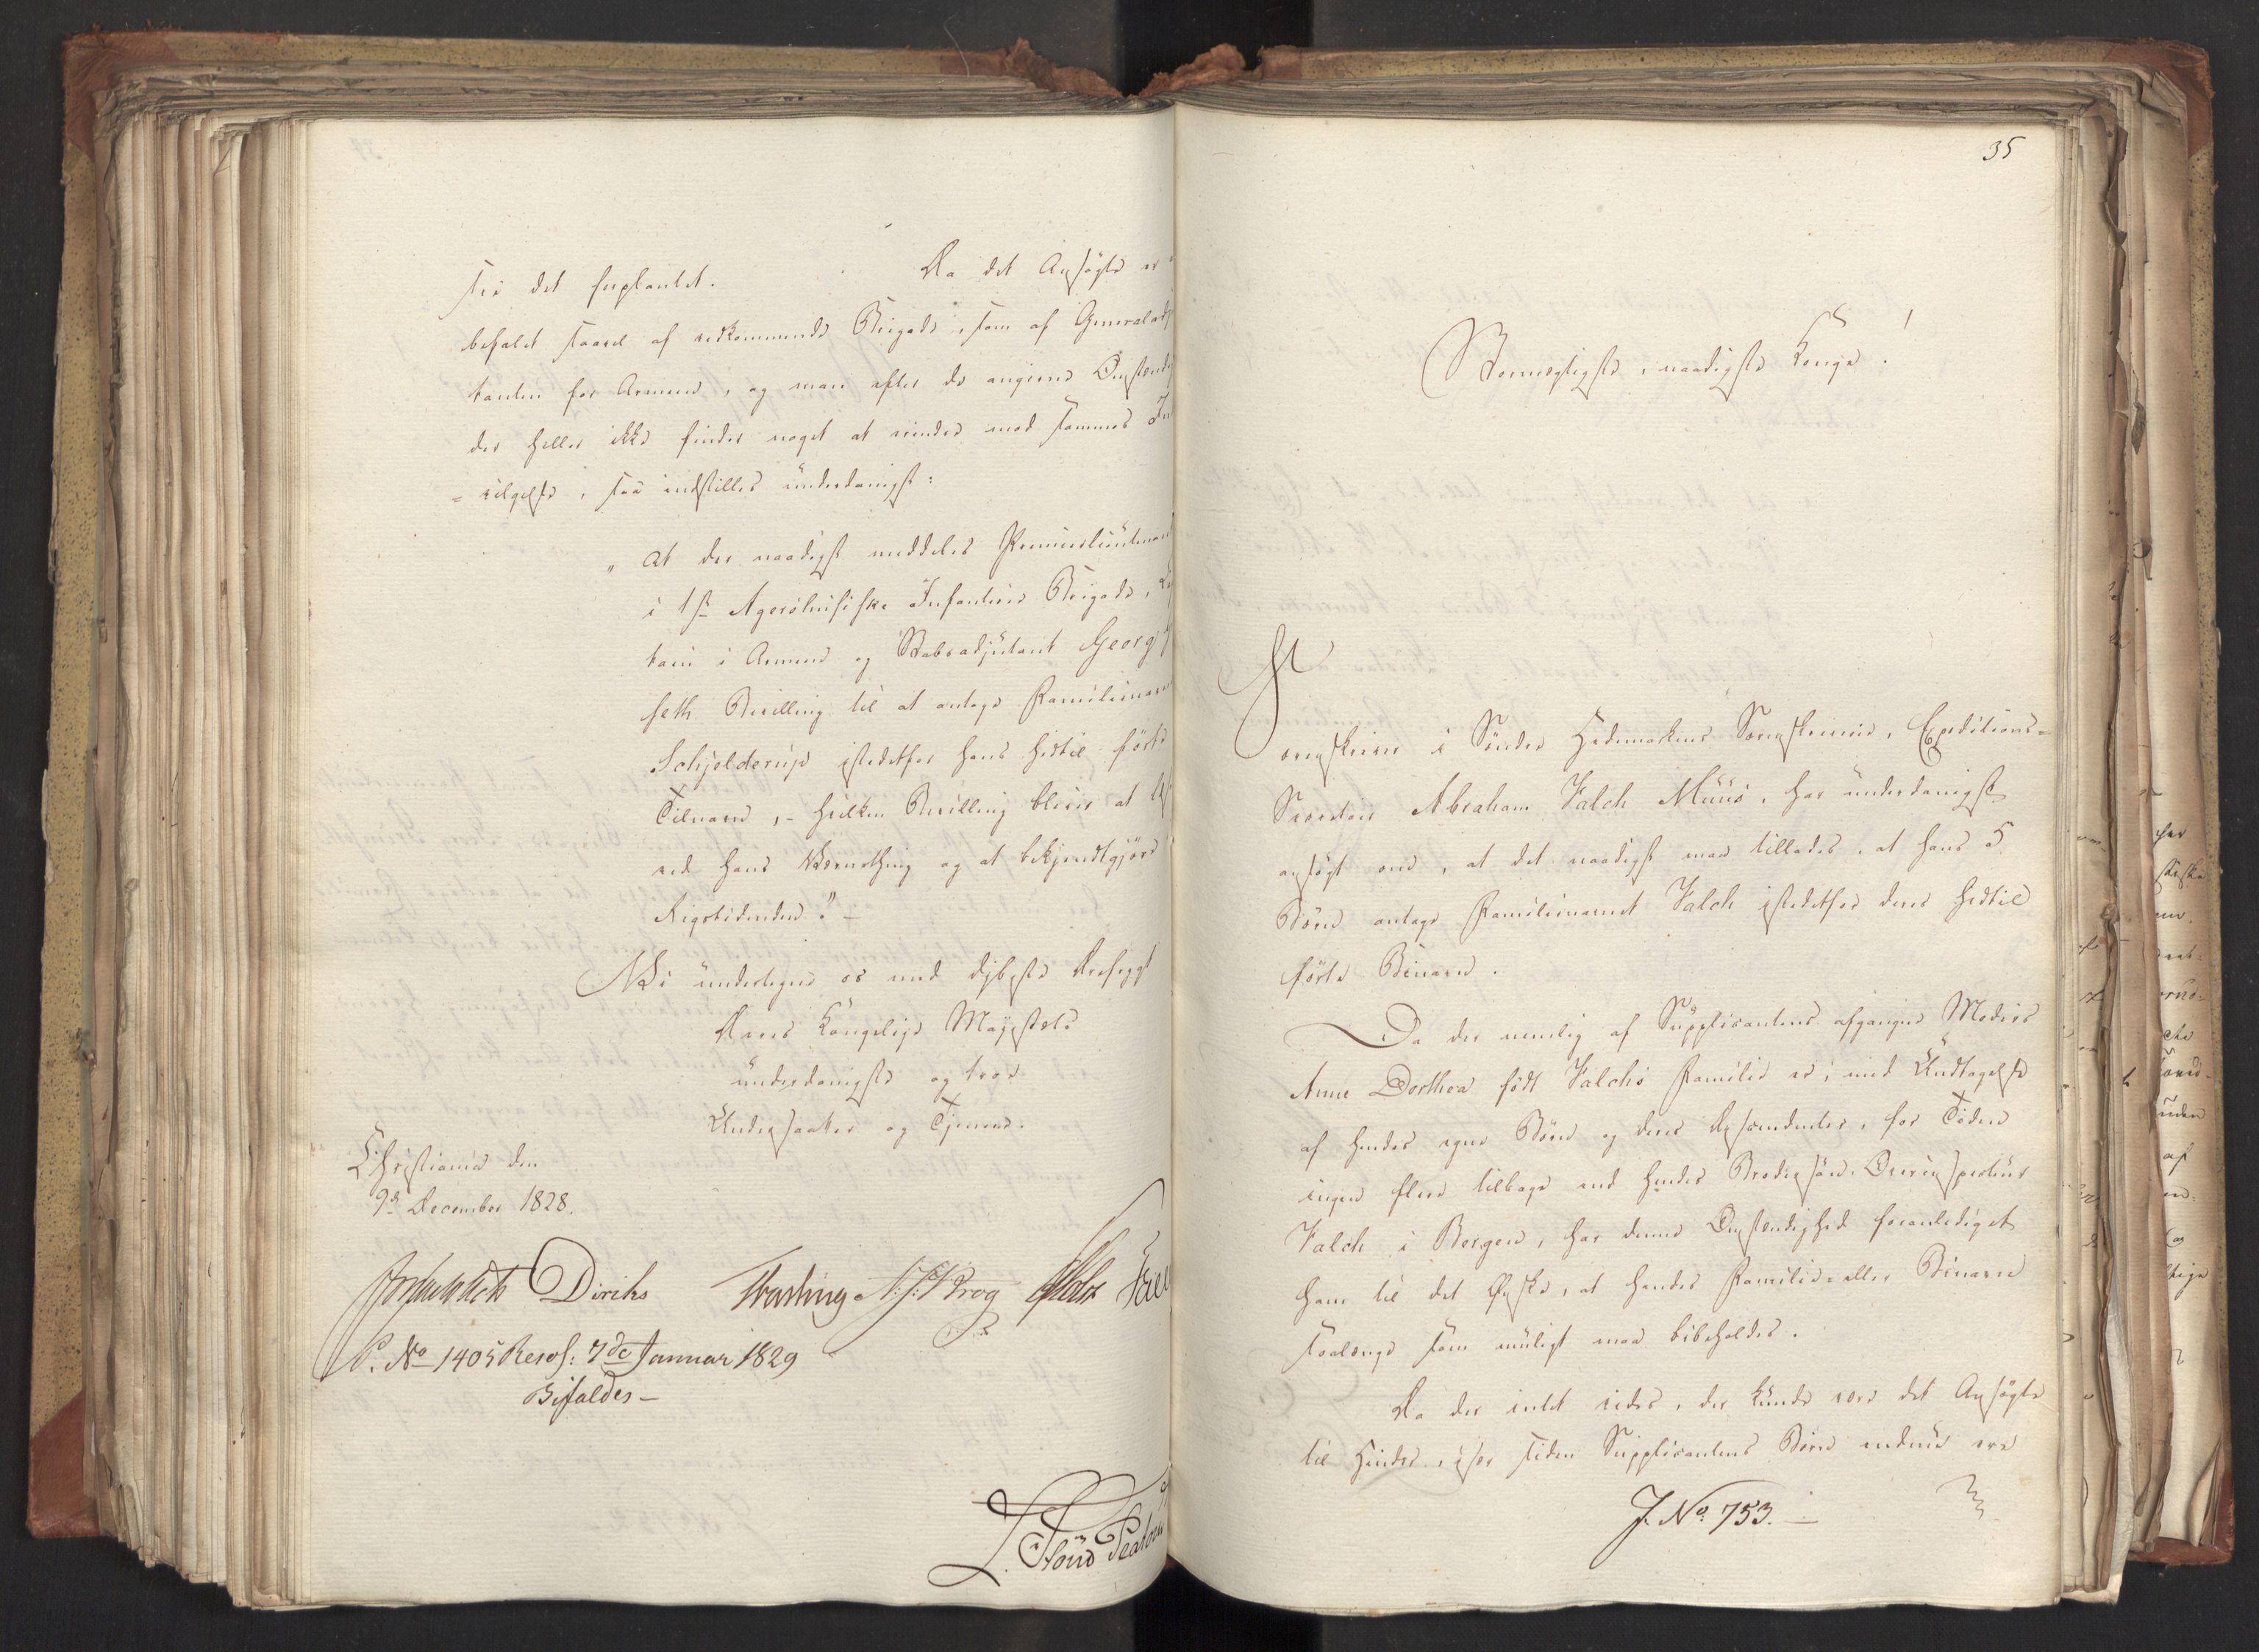 det forplantet. Da det Ansøgte er
befalet saavel af vedkommende Brigade, som af Generaladju
tanten for Armeen, og man efter de angivne Omstændig
der heller ikke finder noget at erindre mod sammes Ind
vilgelse, saa indstilles underdanigst:
„At der naadigst meddeles Premierlieutenant
i 1ste Agershusiske Infanterie Brigade,
tain i Armeen og Stabsadjutant Georg
seth Bevilling til at antage Familienavnet
Schjelderup istedetfor hans hidtil førte
Tilnavn, – hvilken Bevilling bliver at læse
ved hans Værnething og at bekjendtgjøre
Rigstidenden." –
Vi undertegne os med dybeste Ærefrygt
Deres Kongelige Majestæts
underdanigste og troe
Undersaatter og Tjenere.
Christiania den
9de December 1828.
Diriks N. J. Krog Holst
P. No 1405 Resol: 7de Januar 1829
Bifaldes –
35
Stormægtigste, naadigste Konge!
Sorenskriver i Sønder Hedemarkens Sorenskriverie, Expeditions-
Secretair Abraham Falch Müüs, har underdanigst
ansøgt om, at det naadigst maa tillades, at hans 5
Børn antage Familienavnet Falch istedetfor deres hidtil
førte Binavn.
Da der nemlig af Supplicantens afgangne Moders
Anne Dorthea født Falchs Familie er, med Undtagelse
af hendes egne Børn og deres Descendenter, for Tiden
ingen flere tilbage end hendes Brodersøn Overinspecteur
Falch i Bergen, har denne Omstændighed foranlediget
ham til det Ønske, at hendes Familie- eller Binavn
saalænge som muligt maa bibeholdes.
Da der intet vides, der kunde være det Ansøgte
til Hinder, især siden Supplicantens Børn endnu ere
J. No. 753. –